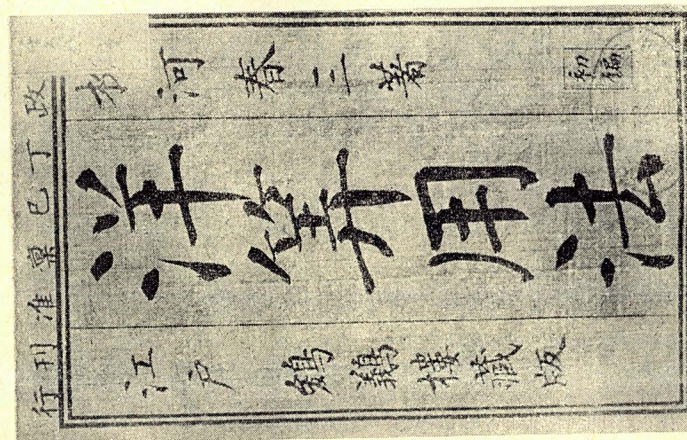 政丁巳稟准刊行
柳河春三著 初編
洋筭用法
江戸 樓藏版